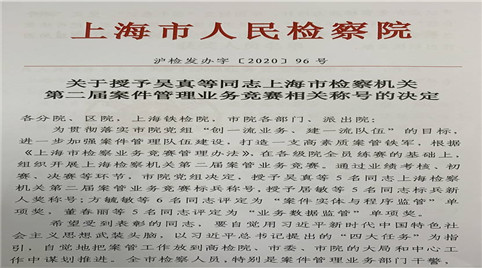 上海市人民检察院
沪检发办字〔2020〕96号
关于授予吴真等同志上海市检察机关
第二届案件管理业务竞赛相关称号的决定
各分院、区院，上海铁检院，市院各部门、派出院：
为贯彻落实市院党组“创一流业务、建一流队伍”的目标，
进一步加强案件管理队伍建设，打造一支高素质案管铁军，根据
《上海市检察业务竞赛管理办法》，在各级院全员练赛的基础上，
组织开展上海检察机关第二届案管业务竞赛。通过业绩考核、初
赛、决赛等环节，市院党组决定，授予吴真等5名同志上海检察
机关第二届案管业务竞赛标兵称号，授予居敏等5名同志标兵新
人奖称号；方毓敏等6名同志评定为“案件实体与程序监管”单
项奖，董春丽等5名同志评定为“业务数据监管”单项奖。
希望受到表彰的同志，要自觉用习近平新时代中国特色社
会主义思想武装头脑，以习近平总书记提出的“四大任务”为指
引，自觉地把案管工作放到高检院、市委、市院的大局和中心工
作中谋划推进。全市检察人员，特别是案件管理业务部门干警，